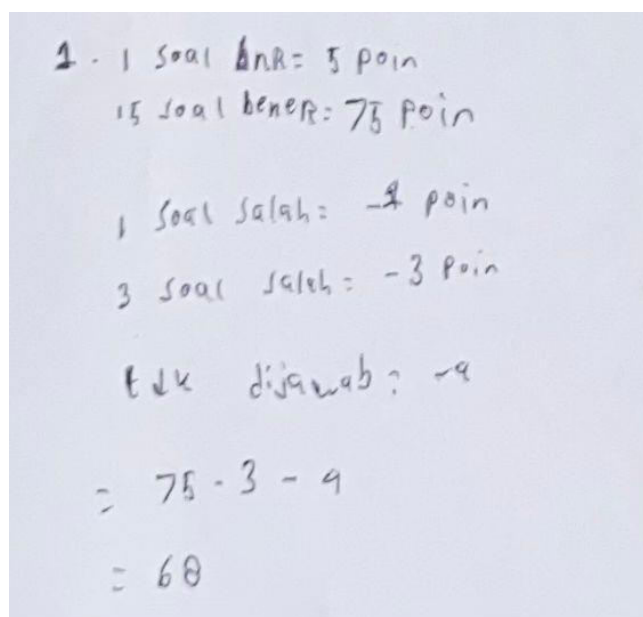 1. 1 soal bnR = 5 poin
15 soal beneR = 75 poin
1 soal salah = -1 poin
3 soal salah = -3 poin
tdk dijawab = -4
= 75 - 3 - 4
= 68